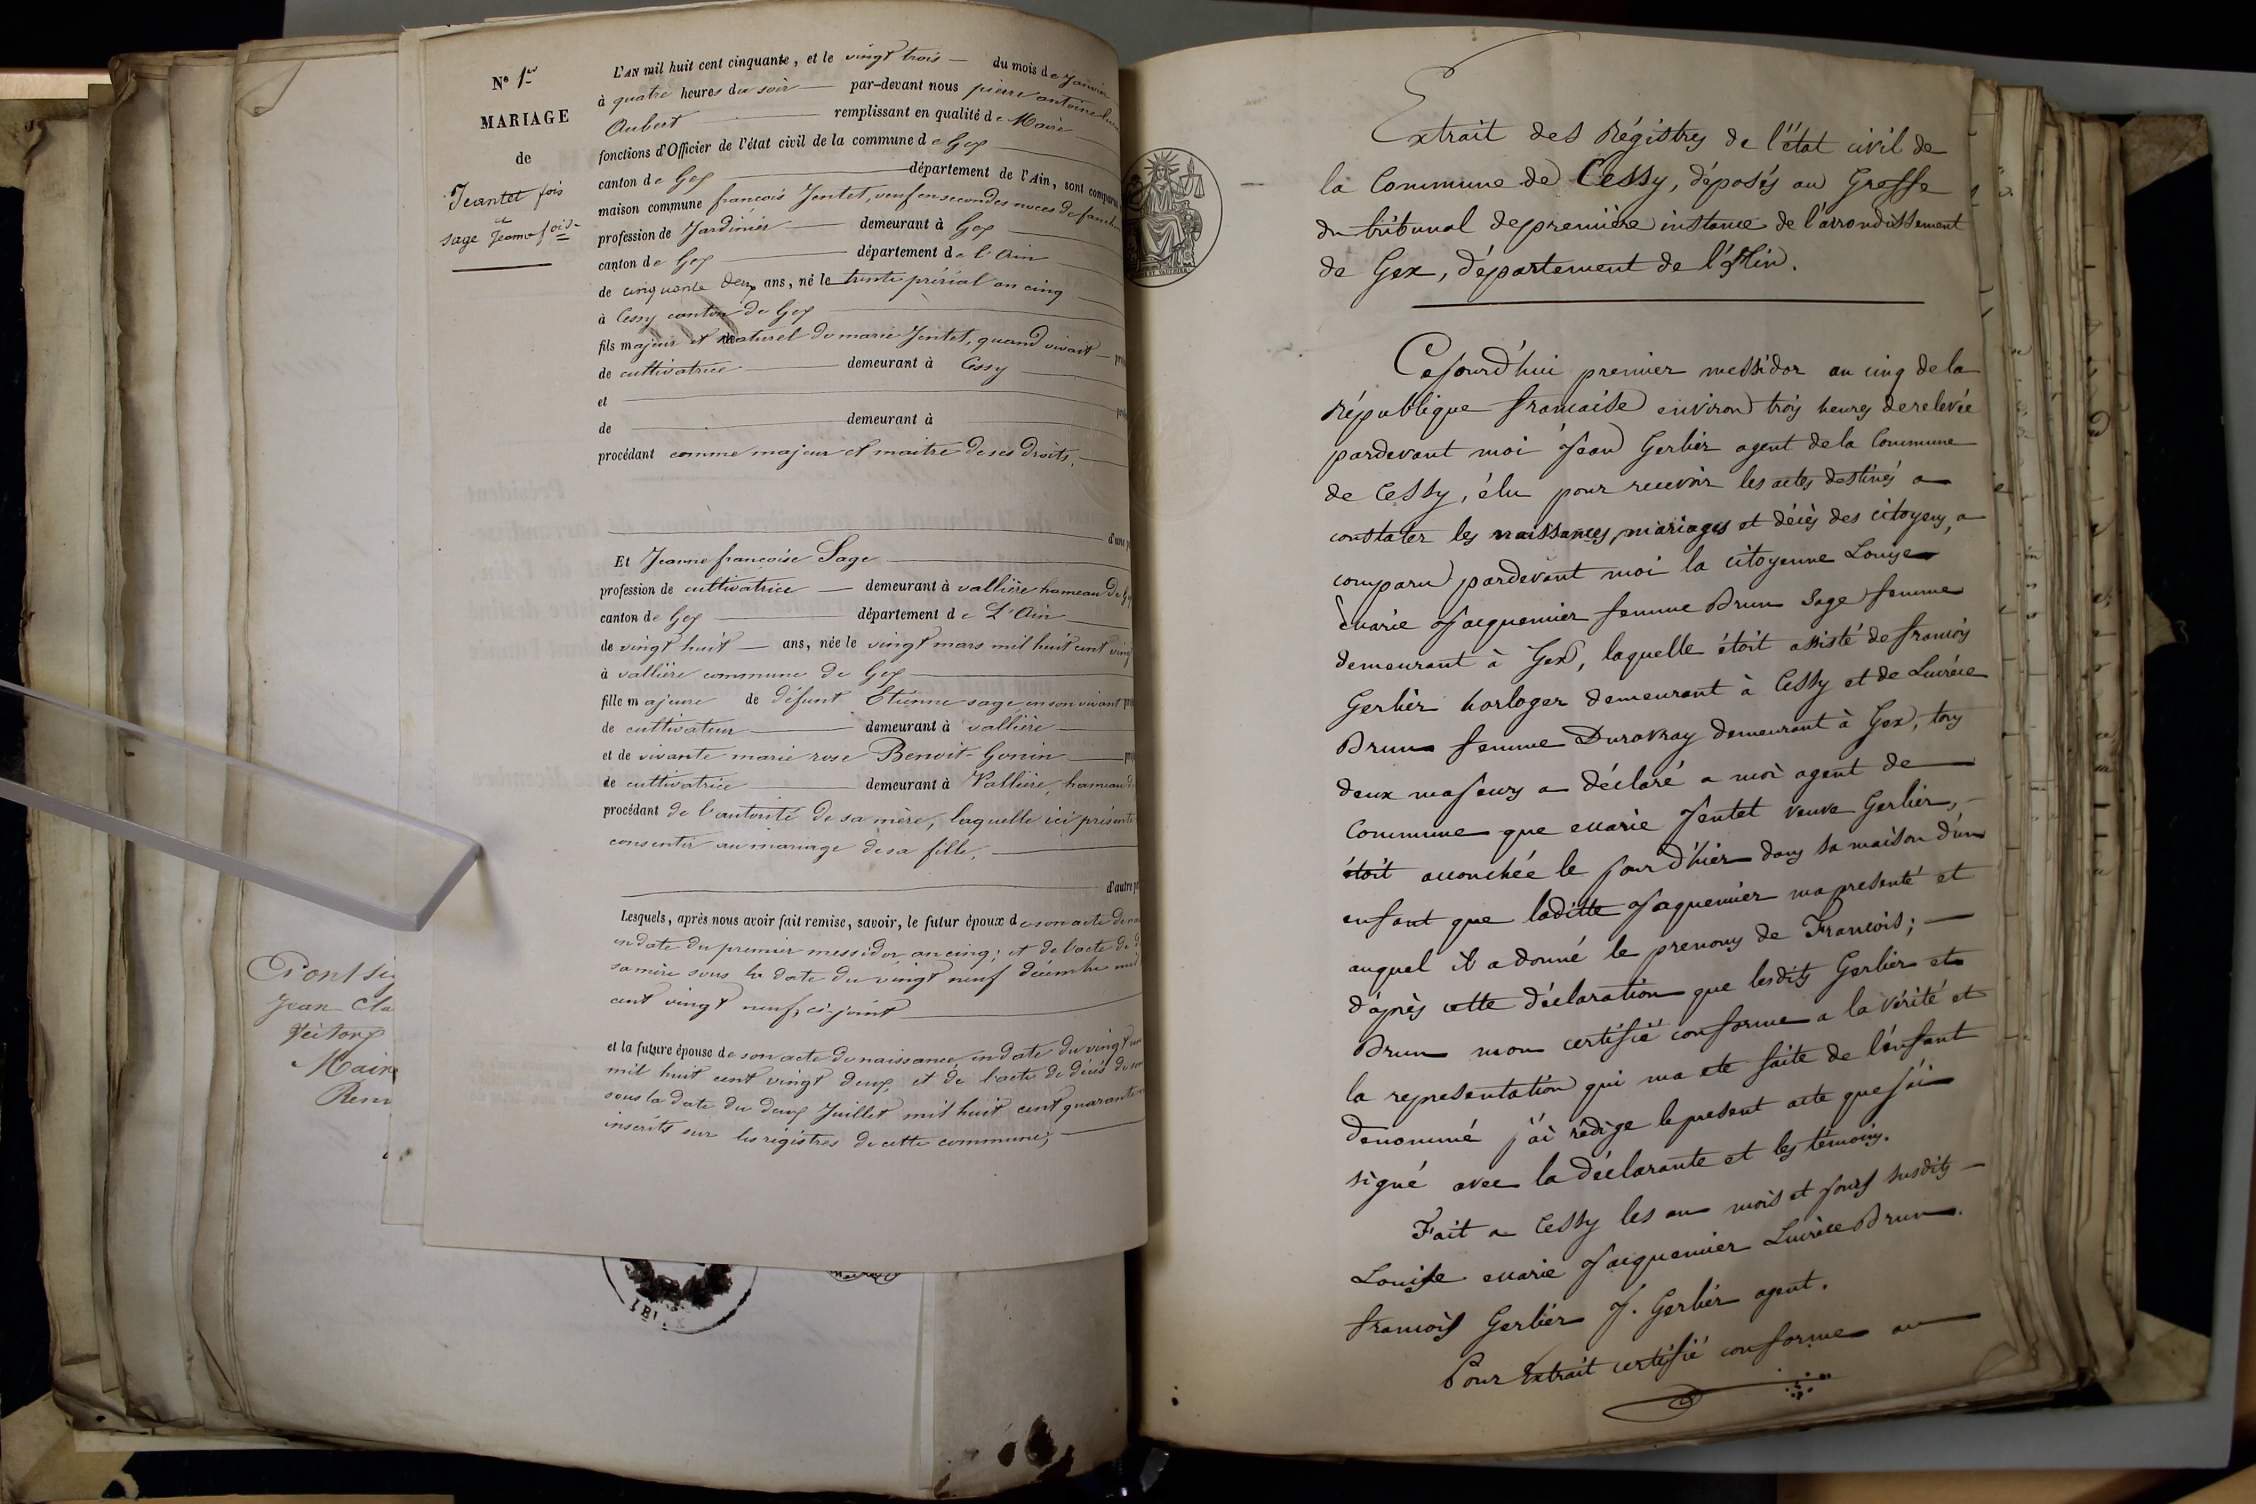 N° 1er
MARIAGE
de
Jeantet fois
et
sage Jeanne foise
L'AN mil huit cent cinquante, et le vingt trois du mois de Janvier
à quatre heures du soir par-devant nous pierre antoine
Aubert remplissant en qualité de Maire
fonctions d'Officier de l'état civil de la commune de Gex
canton de Gex département de l'Ain, sont comparus
maison commune françois Jentet, veuf en secondes noces de
profession de Jardinier demeurant à Gex
canton de Gex département de l'Ain
de cinquante deux ans, né le trente prérial an cinq
à Cessy canton de Gex
fils majeur et naturel de marie Jentet, quand vivait
de cultivatrice demeurant à Cessy
et
de demeurant à
procédant comme majeur et maitre de ses droits,
d'une
Et Jeanne françoise Sage
profession de cultivatrice demeurant à vallière hameau de
canton de Gex département de L'Ain
de vingt huit ans, née le vingt mars mil huit cent vingt
à vallière commune de Gex
fille majeure de défunt Etienne sage, en son vivant
de cultivateur demeurant à vallière
et de vivante marie rose Benoit-Gonin
de cultivatrice demeurant à Vallière, hameau
procédant de l'autorité de sa mère, laquelle ici présente
consentir au mariage de sa fille,
d'autre
Lesquels, après nous avoir fait remise, savoir, le futur époux de son acte de
en date du premier messidor an cinq; et de l'acte de
sa mère sous la date du vingt neuf décembre mil
cent vingt neuf, ci-joint
et la future épouse de son acte de naissance en date du vingt
mil huit cent vingt deux, et de l'acte de décès de
sous la date du deux Juillet mil huit cent quarante
inscrits sur les registres de cette commune;
Jean Cla
Maire
Extrait des Régistres de l'état civil de
la Commune de Cessy, déposés au Greffe
du tribunal de première instance de l'arrondissement
de Gex, département de l'Ain.
Cejourd'hui premier messidor an cinq de la
République francaise environ trois heures de relevée
pardevant moi Jean Gerlier agent de la Commune
de Cessy, élu pour recevoir les actes destinés a
constater les naissances, mariages et décès des citoyens, a
comparu pardevant moi la citoyenne Louise
Marie Jacquemier femme Brun Sage femme
demeurant à Gex, laquelle étoit assisté de francois
Gerlier horloger demeurant à Cessy et de Lucrèce
Brun femme Duravray demeurant à Gex, tous
deux majeurs a déclaré a moi agent de
Commune que Marie Jentet veuve Gerlier,
étoit accouchée le jour d'hier dans sa maison d'un
enfant que laditte Jacquemier ma presenté et
auquel il a donné le prenoms de Francois;
d'après cette déclaration que lesdits Gerlier et
Brun mon certifié conforme a la vérité et
la representation qui ma ete faite de l'enfant
denommé j'ai rédige le present acte que j'ai
signé avec la déclarante et les témoins.
Fait a Cessy les an mois et jours susdits
Louise Marie Jacquemier Lucrèce Brun.
francois Gerlier J. Gerlier agent.
Pour Extrait certifié conforme au